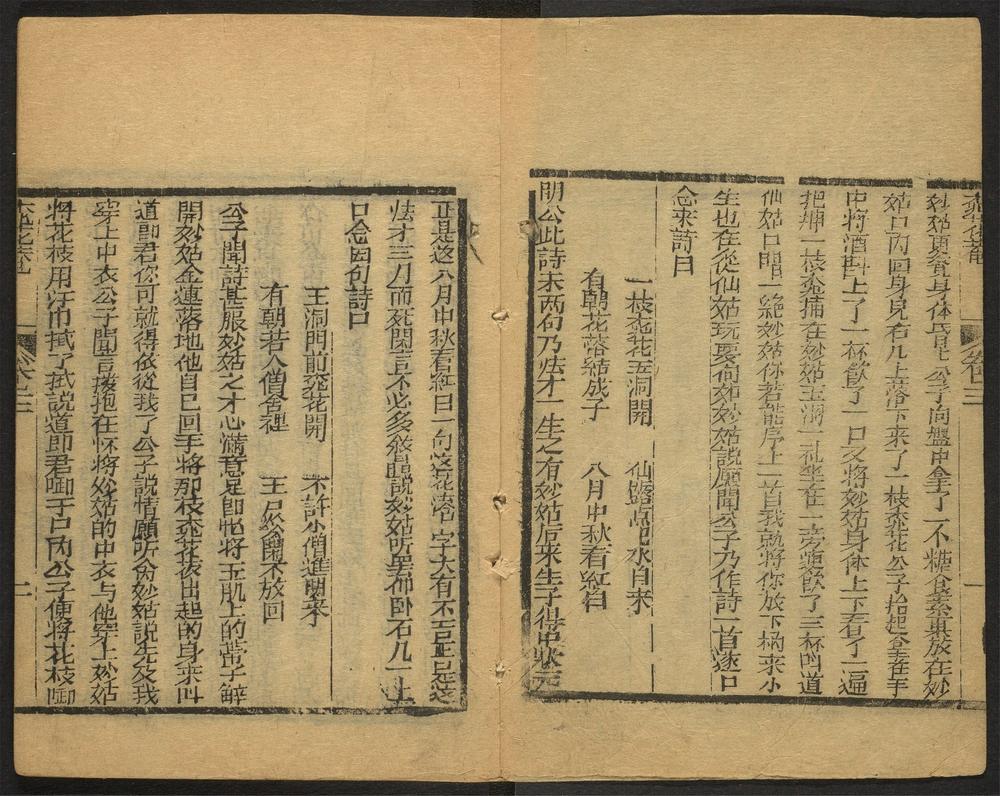 桃花庵 卷三 一
妙姑更覚身体昏昆公子向盤中拿了一不糖食菓放在妙
姑口內回身見有几上落下来了一枝桃花公子拾起拿在手
中将酒斟上了一杯飲了一口又将妙姑身体上下看了一遍
把那一枝桃插在妙姑玉洞一礼坐在一旁連飲了三杯叫道
仙姑口占一絶妙姑你若能序上一首我就将你放下柄来小
生也在從仙姑玩耍何如妙姑説願聞公子乃作詩一首遂口
念来詩曰
一枝桃花玉洞開 仙露点肥水自来
有朝花落結成子 八月中秋看紅日
明公此詩末两句乃法才一生之有妙姑后来生子得中狀元
正是這八月中秋看紅日一句這花落一字大有不吉正是這
法才三刀而死閑言不必多叙且説妙姑听罢仰卧石几一上
口念四句詩曰
玉洞門前桃花開 不許小僧進関来
有朝若入僧舍裡 王尽翁関不放回
公子聞詩甚服妙姑之才心滿意足即忙将玉肌上的帶子解
開妙姑金蓮落地他自己回手将那枝桃花拔出起的身来叫
道郎君你可就得依從我了公子説情願听命妙姑説先及我
穿上中衣公子聞言摟抱在怀将妙姑的中衣与他穿上妙姑
将花枝用汗巾拭了拭説道郎君啣于口內公子便将花枝啣
桃花庵 卷三 一